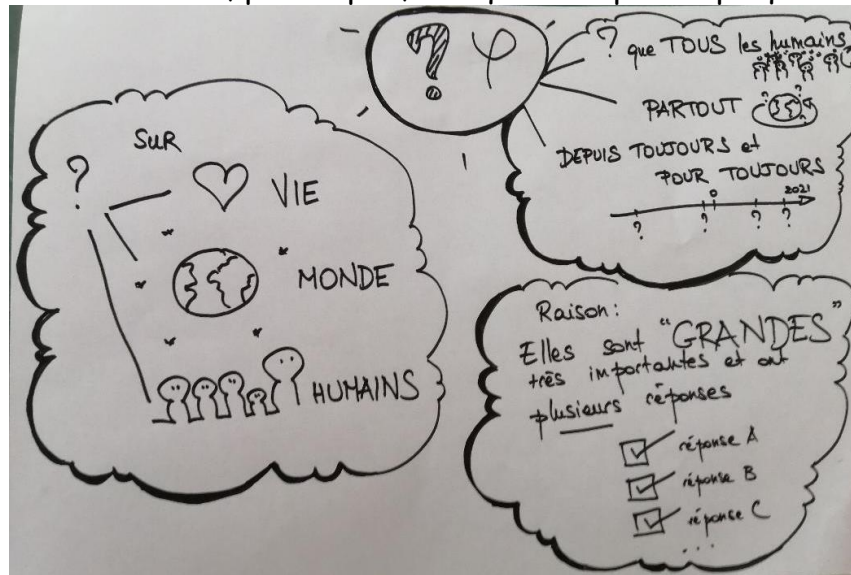 ? φ
? que TOUS les humains
PARTOUT
DEPUIS TOUJOURS et
POUR TOUJOURS
0 2021
? ? ? ?
SUR
?
VIE
MONDE
HUMAINS
Raison:
Elles sont "GRANDES"
très importantes et ont
plusieurs réponses
réponse A
réponse B
réponse C
...